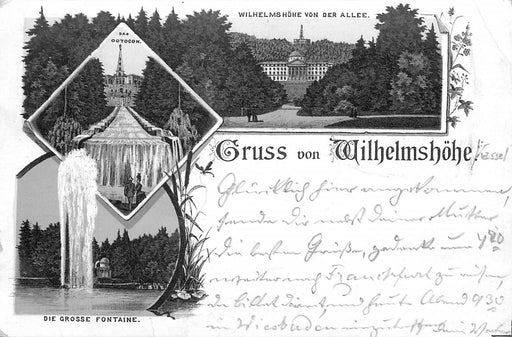 WILHELMSHÖHE VON DER ALLEE.
DAS
OCTOGON.
Gruss von Wilhelmshöhe
Cassel
Glücklich hier angekommen,
sende Dir nebst Deiner Mutter
die besten Grüße, gedenke um 4 20
weiter nach Frankfurt zu reisen,
und heute Abend 9 30
in Wiesbaden
DIE GROSSE FONTAINE.